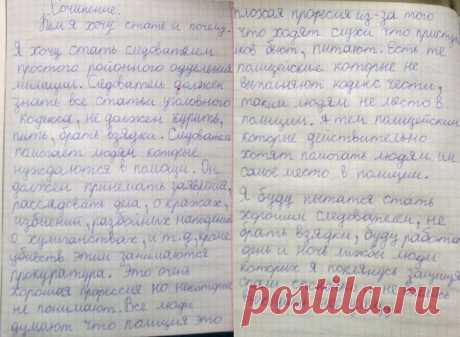 Сочинение.
Кем я хочу стать и почему.
Я хочу стать следователем
простого районного отделения
милиции. Следователь должен
знать все статьи уголовного
кодекса, не должен курить,
пить, брать взятки. Следователь
помогает людям которые
нуждаются в помощи. Он
должен принимать заявления,
расследовать дела, о кражах,
избиении, разбойных нападениях
о хулиганствах, и т.д, кроме
убийств этим занимаются
прокуратура. Это очень
хорошая профессия но некоторые
не понимают. Все люди
думают что полиция это
плохая професия из-за того
что ходят слухи что преступ
ков бьют, питают. Есть те
полицейские которые не
выполняют кодекс чести,
таким людям не место в
полиции. А тем полицейским
которые действительно
хотят помогать людям им
самое место в полиции.
Я буду пытатся стать
хорошим следователем, не
брать взятки, буду работать
день и ночь лижбы люди
которых я поклянусь защищать
postila.ru